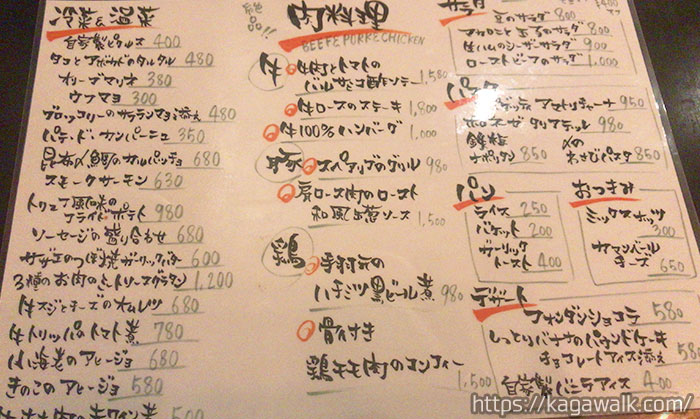 冷菜&温菜
自家製ピクルス 400
タコとアボカドのタルタル 480
オリーブマリネ 380
ウフマヨ 300
ブロッコリーのサラマヨ添え 480
パテ・ド・カンパーニュ 350
昆布〆鯛のカルパッチョ 680
スモークサーモン 630
トリュフ風味の
フライドポテト 980
ソーセージの盛り合わせ 680
サザエのつぼ焼ガーリックバター 600
3種のお肉のミートソースグラタン 1,200
牛スジとチーズのオムレツ 680
牛トリッパのトマト煮 780
小海老のアヒージョ 680
きのこのアヒージョ 580
絶品!!
肉料理
BEEFE PORKE CHICKEN
牛
牛肉とトマトの
バルサミコ酢ソテー 1,580
牛ロースのステーキ 1,800
牛100%ハンバーグ 1,000
豚
スペアリブのグリル 980
肩ロース肉のロースト
和風生姜ソース 1,500
鶏
手羽元の
ハチミツ黒ビール煮 980
骨付き
鶏モモ肉のコンフィー 1,500
サラダ
豆のサラダ 800
サラダ 900
生ハムのシーザーサラダ 900
ローストビーフのサラダ 1,000
パスタ
アマトリチャーナ 950
ボロネーゼ タリアテッレ 980
鉄板
ナポリタン 850
〆の
わさびパスタ 850
パン
ライス 250
バケット 200
ガーリック
トースト 400
おつまみ
ミックスナッツ
300
カマンベール
チーズ 650
デザート
フォンダンショコラ 580
しっとりバナナのパウンドケーキ
チョコレートアイス添え 580
自家製バニラアイス 400
https://kagawalk.com/